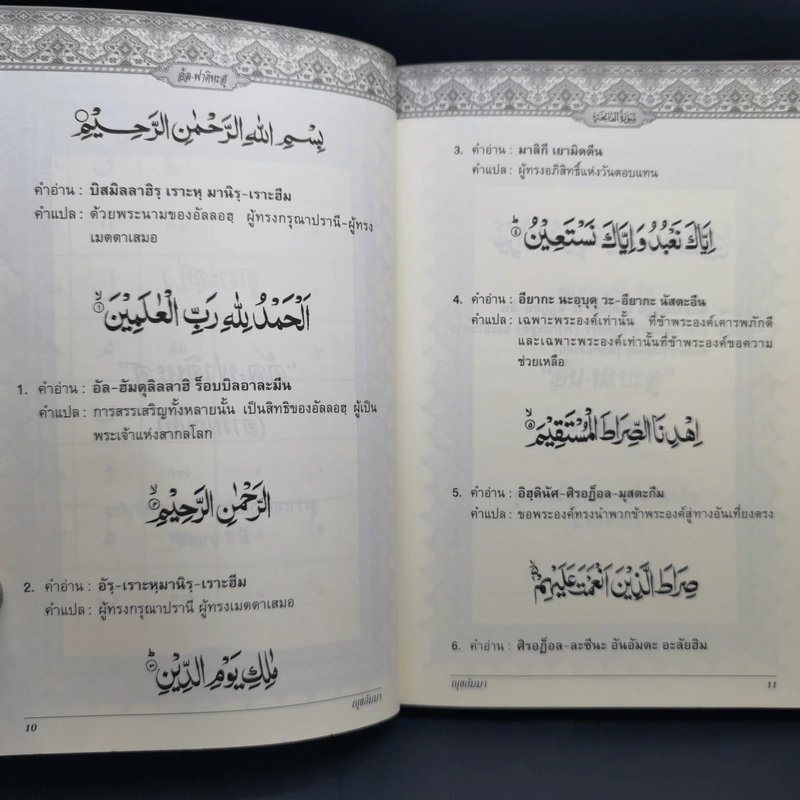 อัล-ฟาติหะฮฺ
بِسْمِ اللهِ الرَّحْمٰنِ الرَّحِيْمِ
คำอ่าน : บิสมิลลาฮิรฺ เราะหฺ มานิรฺ-เราะฮีม
คำแปล : ด้วยพระนามของอัลลอฮฺ ผู้ทรงกรุณาปรานี-ผู้ทรง
เมตตาเสมอ
اَلْحَمْدُ لِلّٰهِ رَبِّ الْعٰلَمِيْنَ ۙ‏﴿١﴾
1. คำอ่าน : อัล-ฮัมดุลิลลาฮิ ร็อบบิลอาละมีน
คำแปล : การสรรเสริญทั้งหลายนั้น เป็นสิทธิของอัลลอฮฺ ผู้เป็น
พระเจ้าแห่งสากลโลก
الرَّحْمٰنِ الرَّحِيْمِ ۙ‏﴿٢﴾
2. คำอ่าน : อัรฺ-เราะหฺมานิรฺ-เราะฮีม
คำแปล : ผู้ทรงกรุณาปรานี ผู้ทรงเมตตาเสมอ
مٰلِكِ يَوْمِ الدِّيْنِ ؕ‏﴿٣﴾
ญุซอัมมา
10
سُوْرَةُ الْفَاتِحَةِ
3. คำอ่าน : มาลิกี เยามิดดีน
คำแปล : ผู้ทรงอภิสิทธิ์แห่งวันตอบแทน
اِيَّاكَ نَعْبُدُ وَاِيَّاكَ نَسْتَعِيْنُ ؕ‏﴿٤﴾
4. คำอ่าน : อียากะ นะอฺบุดุ วะ-อียากะ นัสตะอีน
คำแปล : เฉพาะพระองค์เท่านั้น ที่ข้าพระองค์เคารพภักดี
และเฉพาะพระองค์เท่านั้นที่ข้าพระองค์ขอความ
ช่วยเหลือ
اِهْدِنَا الصِّرَاطَ الْمُسْتَقِيْمَ ۙ‏﴿٥﴾
5. คำอ่าน : อิฮฺดินัศ-ศิรอฏ็อล-มุสตะกีม
คำแปล : ขอพระองค์ทรงนำพวกข้าพระองค์สู่ทางอันเที่ยงตรง
صِرَاطَ الَّذِيْنَ اَنْعَمْتَ عَلَيْهِمْ
6. คำอ่าน : ศิรอฏ็อล-ละซีนะ อันอัมตะ อะลัยฮิม
ญุซอัมมา
11